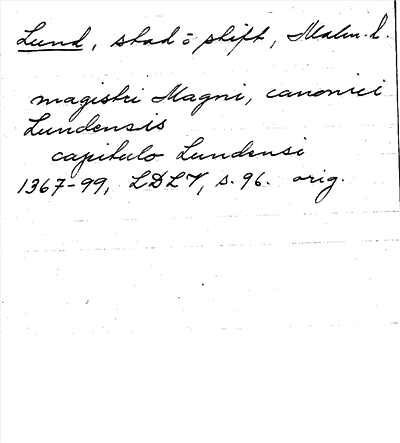 Lund, stad o stift, Malm. l.
magistri Magni, canonici
Lundensis
capitulo Lundensi
1367-99, LDLV, s. 96. orig.